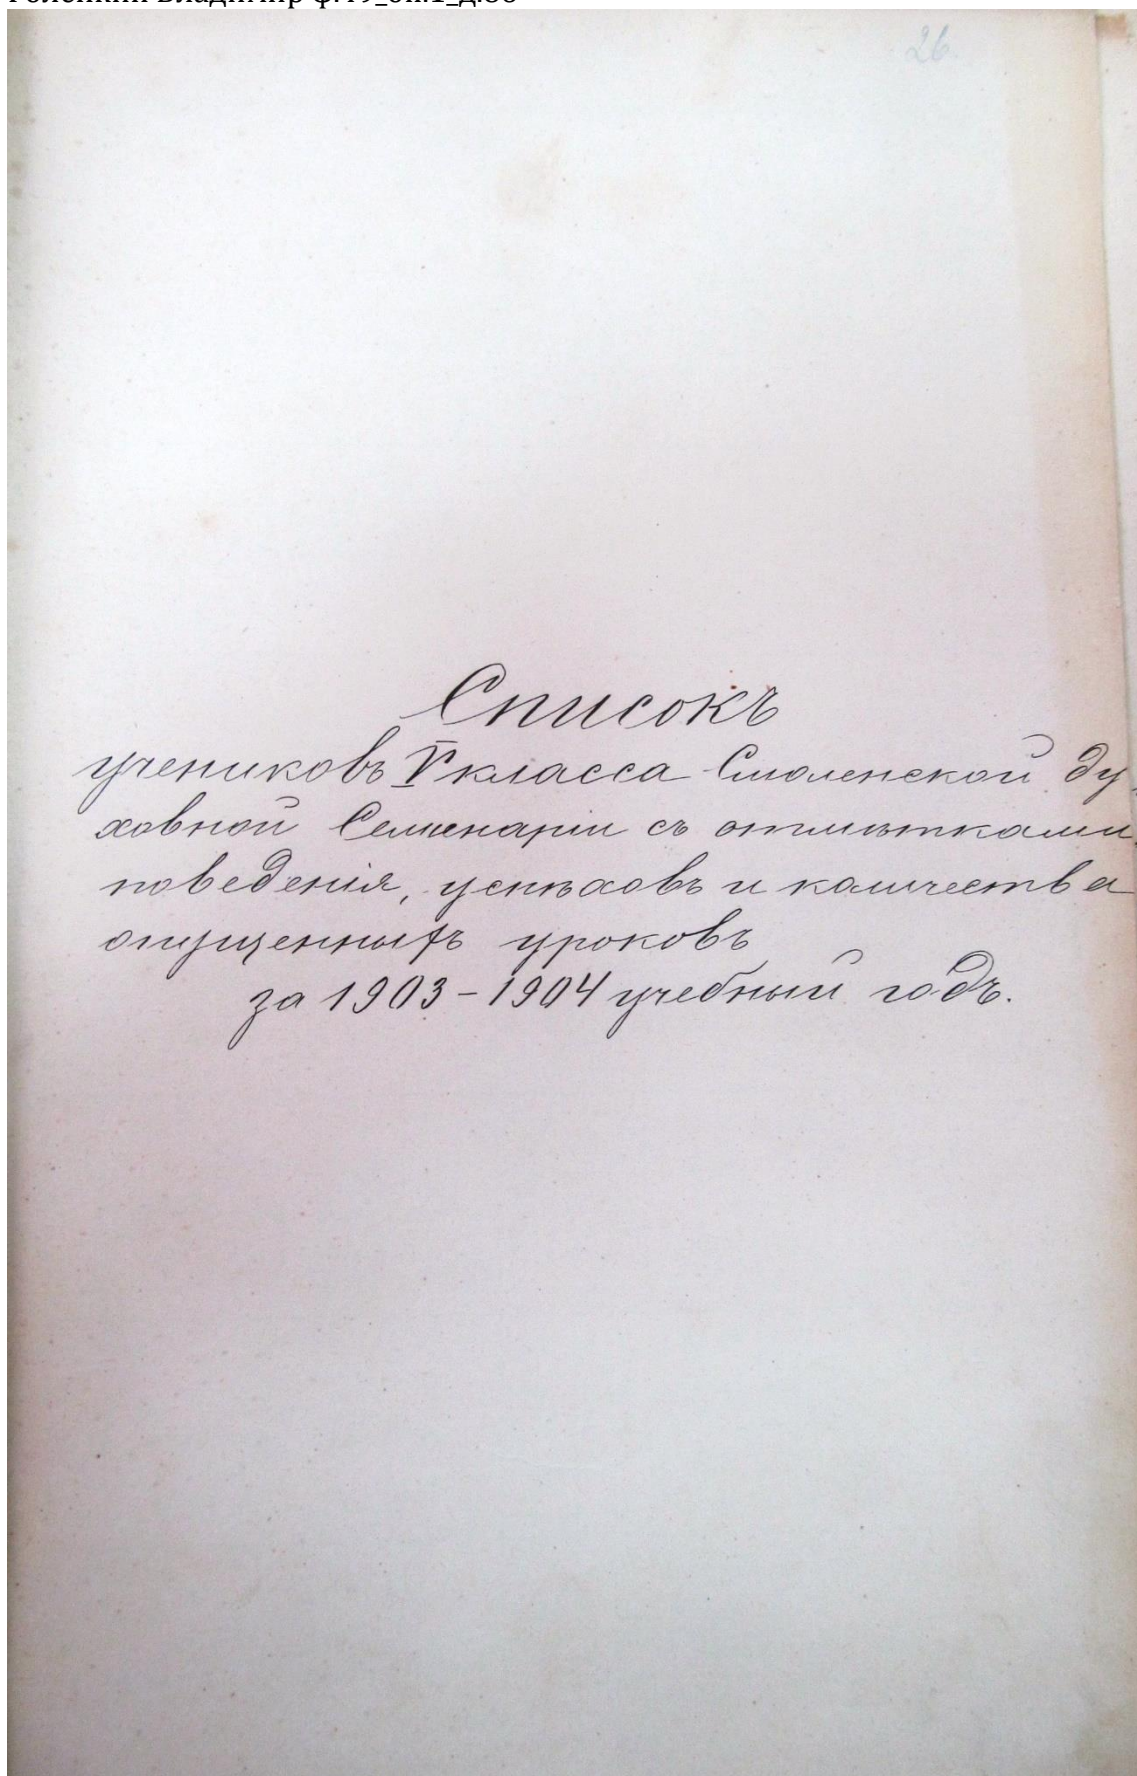 26
Списокъ
учениковъ V класса Смоленской Ду
ховной Семинаріи съ отмѣтками
поведенія, успѣховъ и количества
опущенныхъ уроковъ
за 1903-1904 учебный годъ.